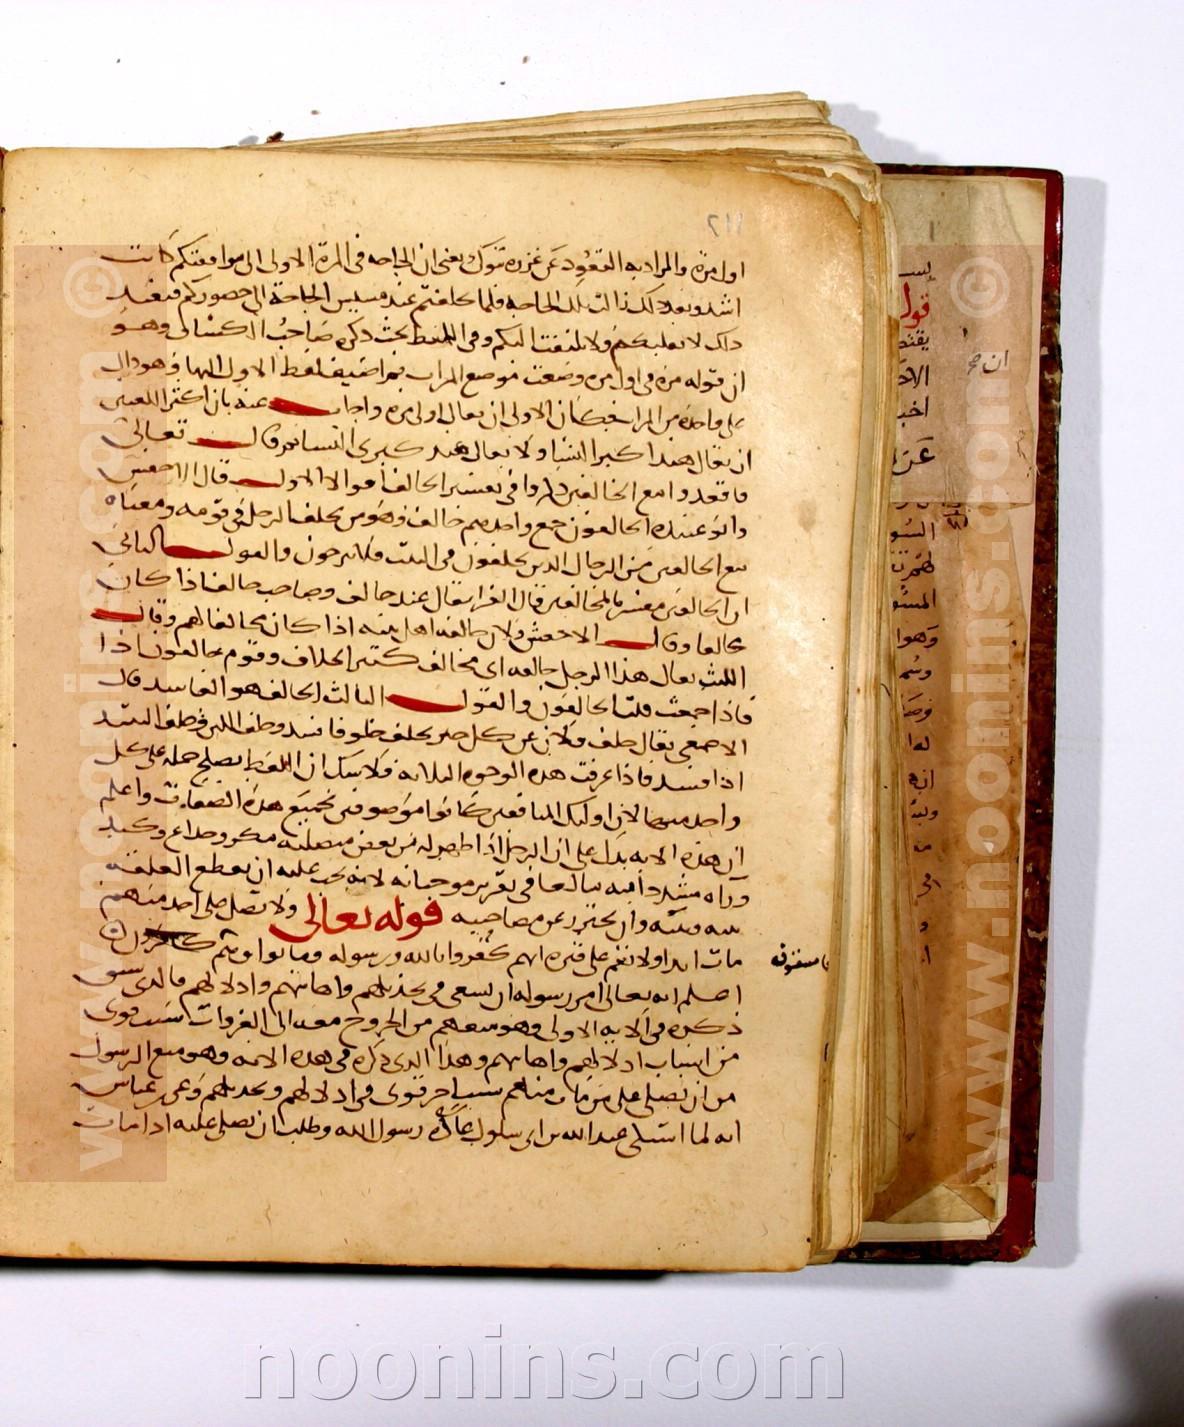 ٢١١
اول مرة والمراد به القعود عن غزوة تبوك يعنى ان الحاجه فى المرة الاولى الى موافقتكم كانت
اشد وبعد ذلك زالت تلك الحاجه فلما تخلفتم عند مسيس الحاجة الى حضوركم فبعد
ذلك لا نقبلكم ولا نلتفت اليكم وفى اللفظ بحث ذكره صاحب الكشاف وهو
ان قوله مرة فى اول مرة وضعت موضع المرات ثم اضيف لفظ الاول اليها وهو دال
على واحدة من المرات فكان الاولى ان يقال اولى مرة واجاب عنه بان اكثر اللغتين
ان يقال هند اكبر النساء ولا يقال هند كبرى النساء ثم قال تعالى
فاقعدوا مع الخالفين ذكروا فى تفسير الخالف اقوالا الاول قال الاخفش
وابو عبيده الخالفون جمع واحدهم خالف وهو من يخلف الرجل فى قومه ومعناه
مع الخالفين من الرجال الذين يخلفون فى البيت فلا يبرحون والقول الثانى
ان الخالفين مفسر بالمخالفين قال الفرا يقال عبد خالف وصاحب خالف اذا كان
مخالفا وقال الاخفش فلان خالفه اهل بيته اذا كان مخالفا لهم وقال
الليث يقال هذا الرجل خالفه اى مخالف كثير الخلاف وقوم خالفون اذا
فاذا جمعت قلت الخالفون والقول الثالث الخالف هو الفاسد قال
الاصمعى يقال خلف فلان عن كل خير يخلف خلوفا فسد وخلف اللبن وخلف النبيذ
اذا فسد فاذا عرفت هذه الوجوه الثلاثه فلا شك ان اللفظ يصلح حمله على كل
واحد منها لان اولئك المنافقين كانوا موصوفين بجميع هذه الصفات واعلم
ان هذه الايه تدل على ان الرجل اذا ظهر له من بعض متصليه مكر وخداع وكيد
وراه مشددا فيه مبالغا فى تقرير موجباته لانه يجب عليه ان يقطع العلقه
بينه وبينه وان يحترز عن مصاحبته قوله تعالى ولا تصل على احد منهم
مات ابدا ولا تقم على قبره انهم كفروا بالله ورسوله وماتوا وهم كافرون
فاسقون
اعلم انه تعالى امر رسوله ان يسعى فى تخذيلهم واهانتهم واذلالهم فالذى سبق
ذكره فى الايه الاولى وهو منعهم من الخروج معه الى الغزوات سبب قوى
من اسباب اذلالهم واهانتهم وهذا الذى ذكره فى هذه الايه وهو منع الرسول
من ان يصلى على من مات منهم سبب اخر قوى فى اذلالهم وتخذيلهم وعن ابن عباس
انه لما اشتكى عبد الله بن ابى سلول عاده رسول الله وطلب ان يصلى عليه اذا مات
ان صح
قول
© www.noonins.com
© www.noonins.com
noonins.com